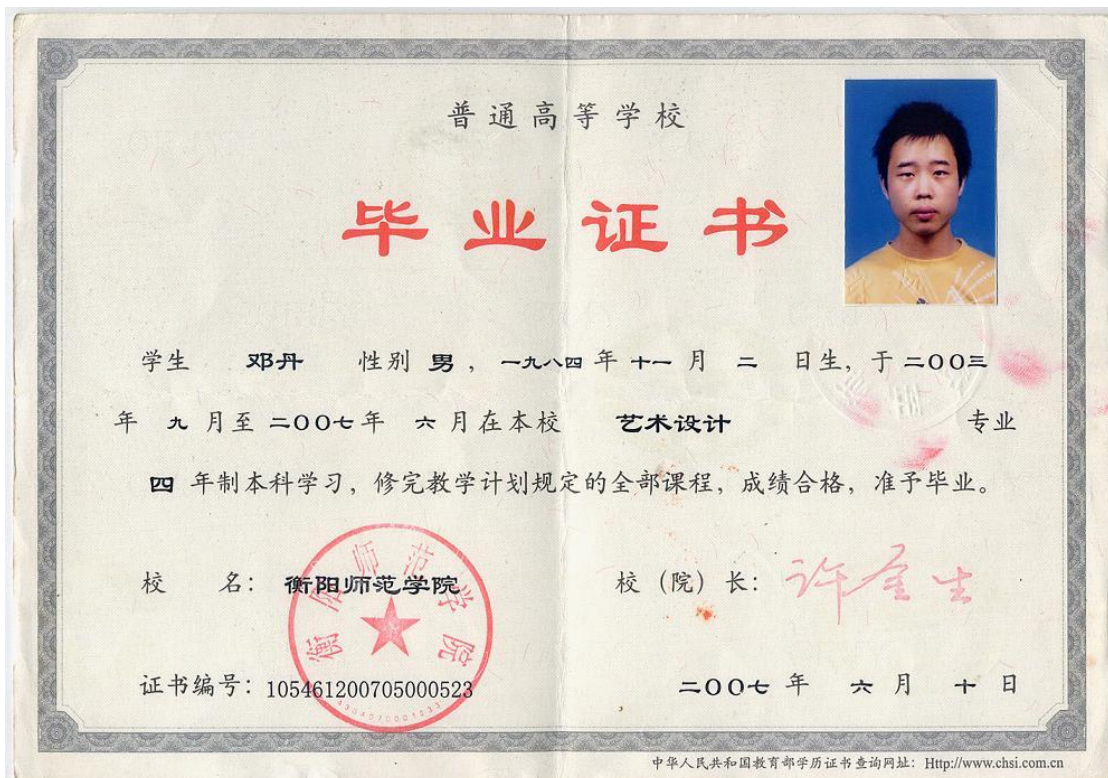 普通高等学校
毕业证书
学生 邓丹 性别 男，一九八四年十一月 二 日生，于二OO三
年 九 月至二OO七年 六 月在本校 艺术设计 专业
四 年制本科学习，修完教学计划规定的全部课程，成绩合格，准予毕业。
校 名：衡阳师范学院
校（院）长：许金生
衡阳师范学院
4304070001233
证书编号：105461200705000523
二OO七 年 六 月 十 日
中华人民共和国教育部学历证书查询网址：Http://www.chsi.com.cn